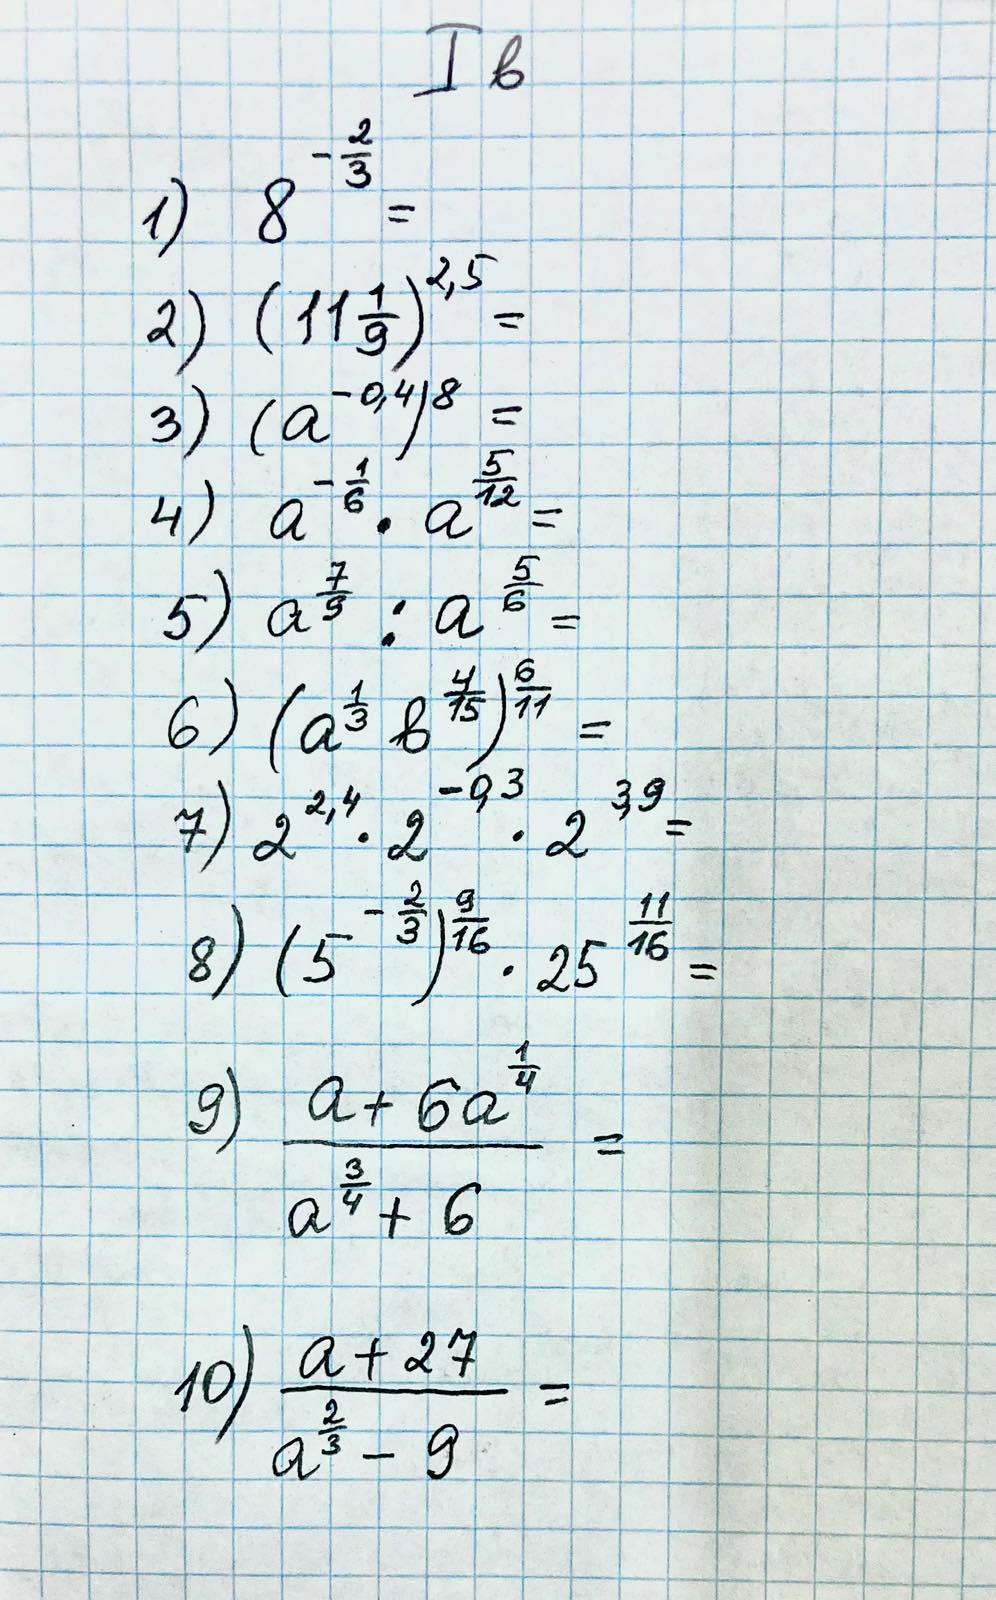 I в
1) 8^{-\frac{2}{3}} =
2) (11\frac{1}{9})^{2,5} =
3) (a^{-0,4})^{8} =
4) a^{-\frac{1}{6}} · a^{\frac{5}{12}} =
5) a^{\frac{7}{9}} : a^{\frac{5}{6}} =
6) (a^{\frac{1}{3}} b^{\frac{4}{15}})^{\frac{6}{11}} =
7) 2^{2,4} · 2^{-0,3} · 2^{3,9} =
8) (5^{-\frac{2}{3}})^{\frac{9}{16}} · 25^{\frac{11}{16}} =
9) \frac{a + 6a^{\frac{1}{4}}}{a^{\frac{3}{4}} + 6} =
10) \frac{a + 27}{a^{\frac{2}{3}} - 9} =